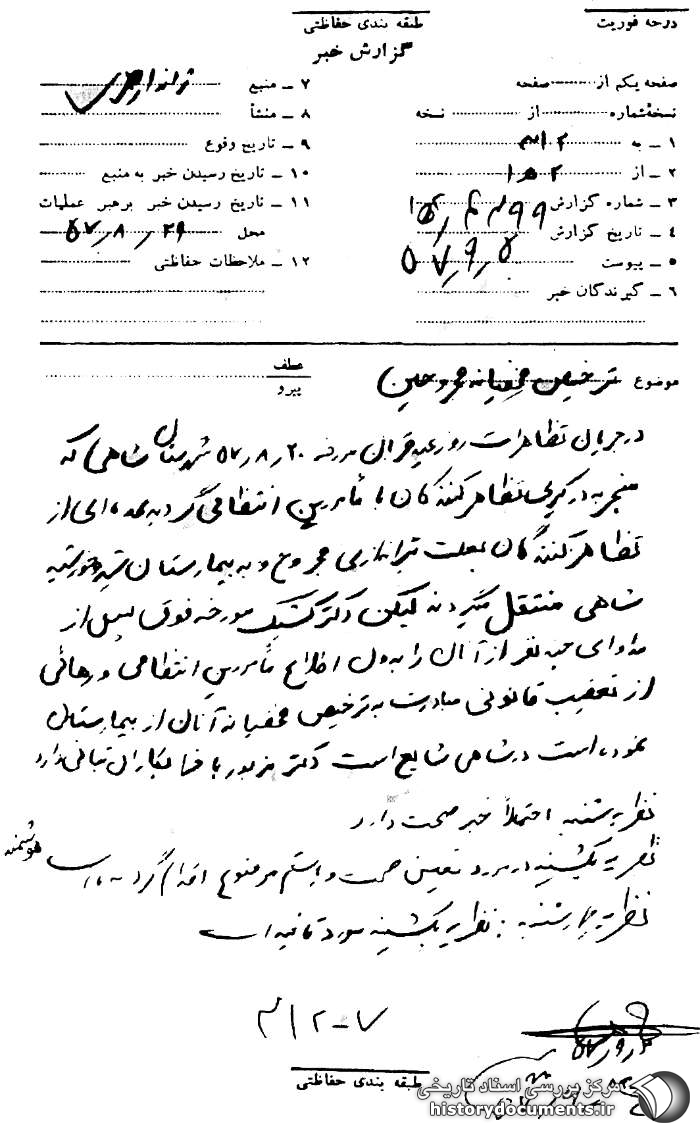 درجه فوریت
طبقه بندی حفاظتی
گزارش خبر
صفحه یکم از صفحه
نسخه شماره از نسخه
۱ ـ به ۳۱۲
۲ ـ از
۳ ـ شماره گزارش
۴ ـ تاریخ گزارش ۵۷٫۹٫۵
۵ ـ پیوست
۶ ـ گیرندگان خبر
۷ ـ منبع
۸ ـ منشأ
۹ ـ تاریخ وقوع
۱۰ ـ تاریخ رسیدن خبر به منبع
۱۱ ـ تاریخ رسیدن خبر برهبر عملیات
محل ۵۷٫۸٫۲۹
۱۲ ـ ملاحظات حفاظتی
موضوع ترخیص مخفیانه مجروحین
عطف
پیرو
در جریان تظاهرات روز عید قربان مورخه ۵۷٫۸٫۲۰ شهرستان شاهی که
منجر به درگیری تظاهرکنندگان با مأمورین انتظامی گردید عده‌ای از
تظاهرکنندگان بعلت تیراندازی مجروح و به بیمارستان شیر و خورشید
شاهی منتقل میگردند لیکن دکتر مورخه فوق پس از
مداوای چند نفر از آنان را بدون اطلاع مأمورین انتظامی و رهائی
از تعقیب قانونی مبادرت به ترخیص مخفیانه آنان از بیمارستان
نموده است در شاهی شایع است دکتر مزبور با خرابکاران تبانی دارد
نظریه شنبه احتمالاً خبر صحت دارد
نظریه یکشنبه در مورد تعیین صحت و سقم موضوع اقدام گردیده است هوشمند
نظریه چهارشنبه : نظریه یکشنبه مورد تائید است
طبقه بندی حفاظتی
مرکز بررسی اسناد تاریخی
historydocuments.ir